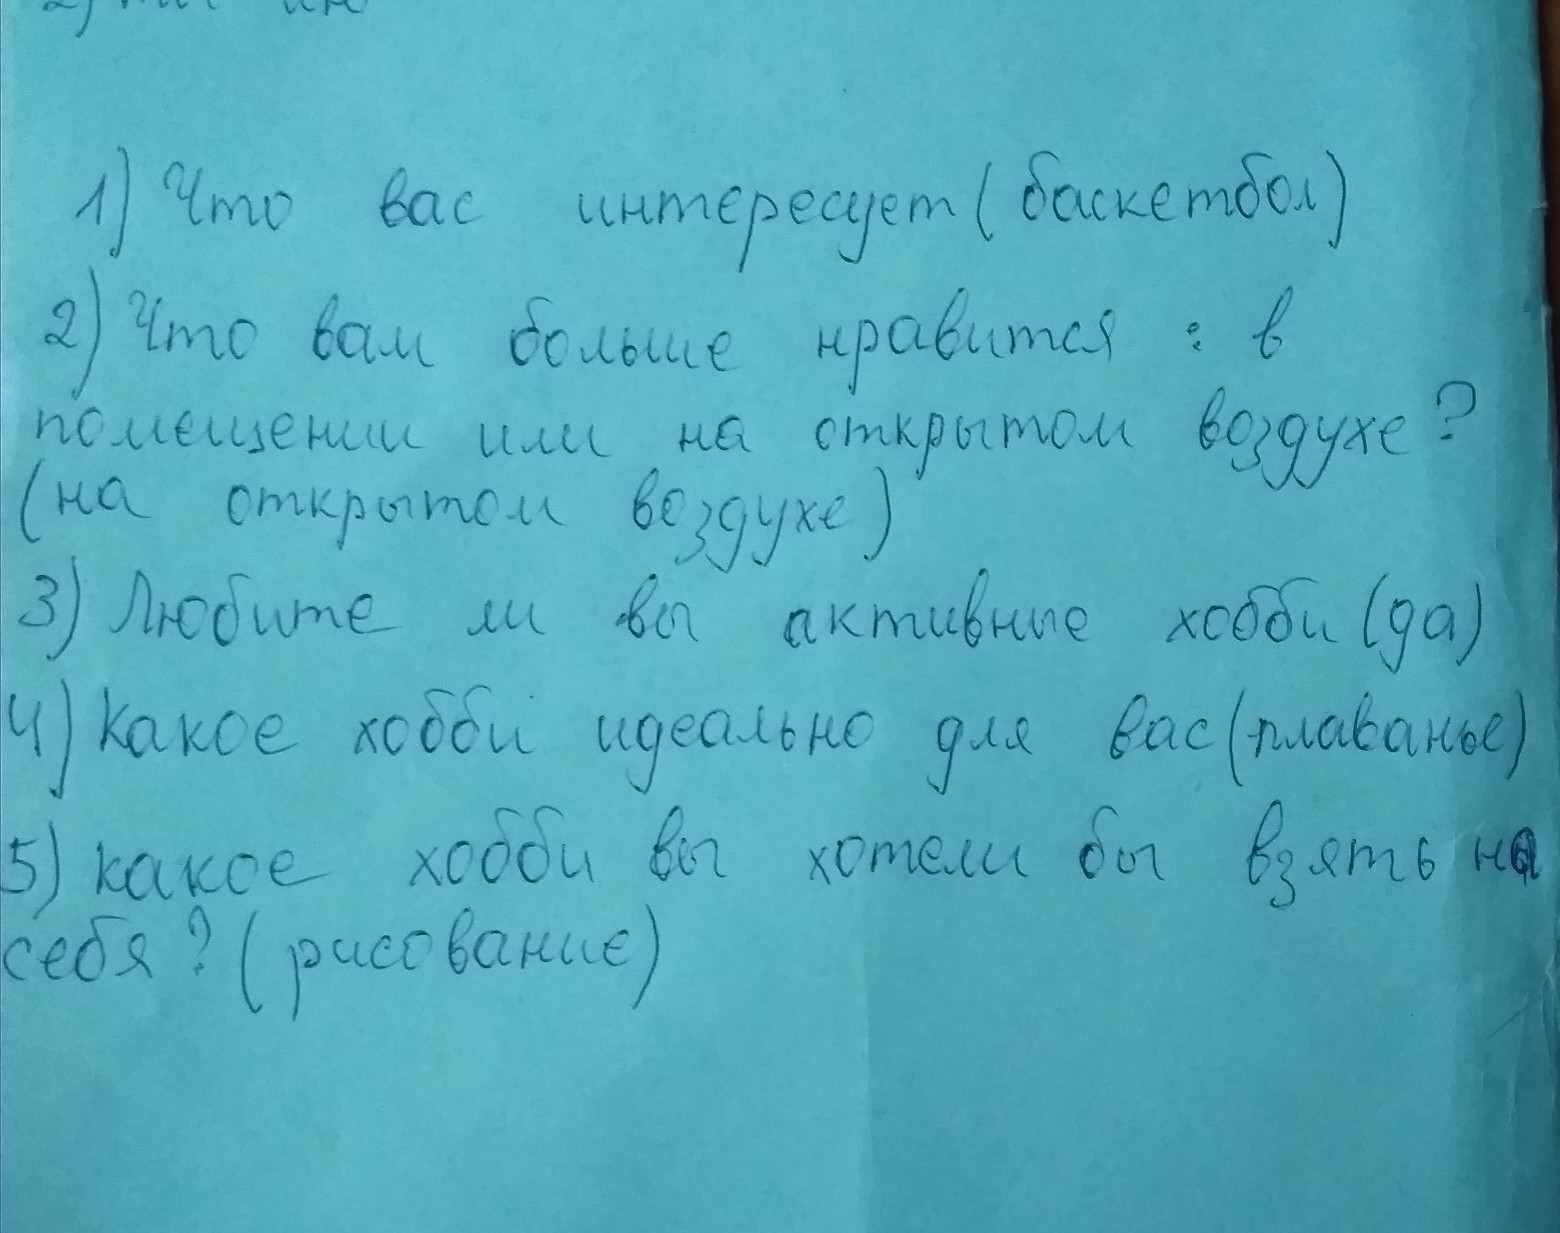 1) Что вас интересует (баскетбол)
2) Что вам больше нравится : в
помещении или на открытом воздухе?
(на открытом воздухе)
3) Любите ли вы активные хобби (да)
4) Какое хобби идеально для вас (плаванье)
5) какое хобби вы хотели бы взять на
себя? (рисование)